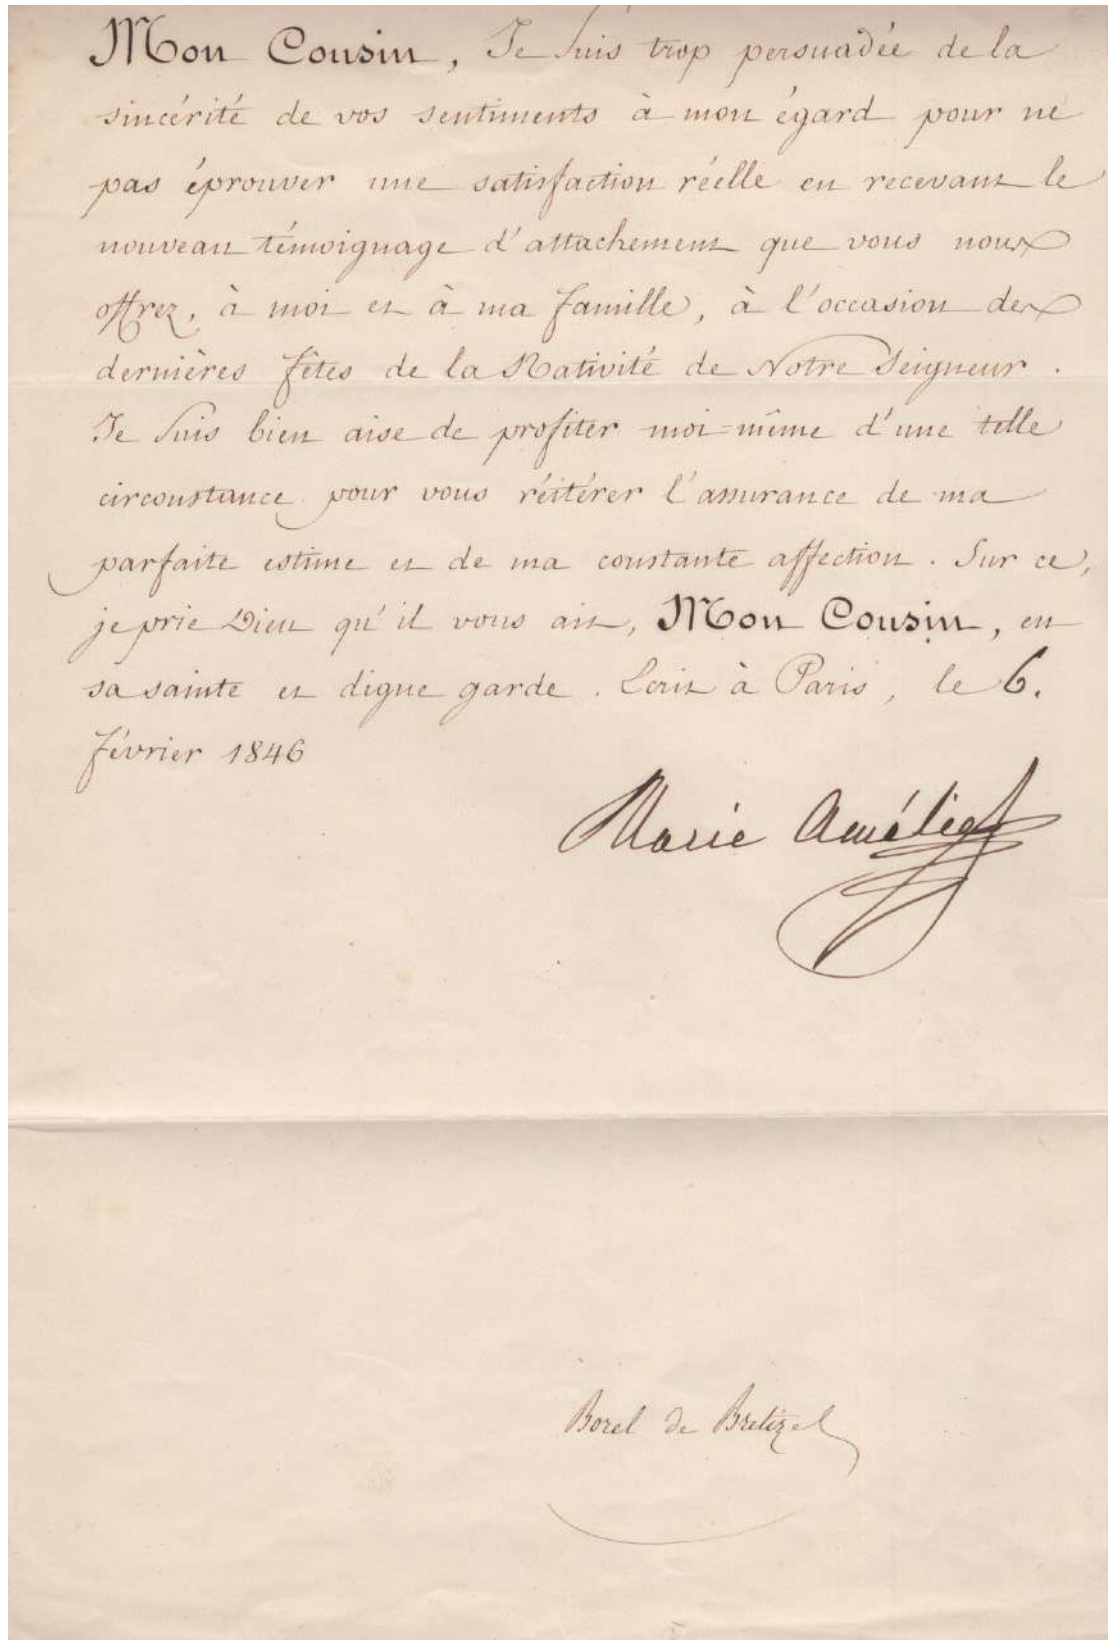 Mon Cousin, Je suis trop persuadée de la
sincérité de vos sentiments à mon égard pour ne
pas éprouver une satisfaction réelle en recevant le
nouveau témoignage d'attachement que vous nous
offrez, à moi et à ma famille, à l'occasion des
dernières fêtes de la Nativité de Notre Seigneur.
Je suis bien aise de profiter moi-même d'une telle
circonstance pour vous réitérer l'assurance de ma
parfaite estime et de ma constante affection. Sur ce,
je prie Dieu qu'il vous ait, Mon Cousin, en
sa sainte et digne garde. Écrit à Paris, le 6.
février 1846
Marie Amélie
Borel de Bretizel